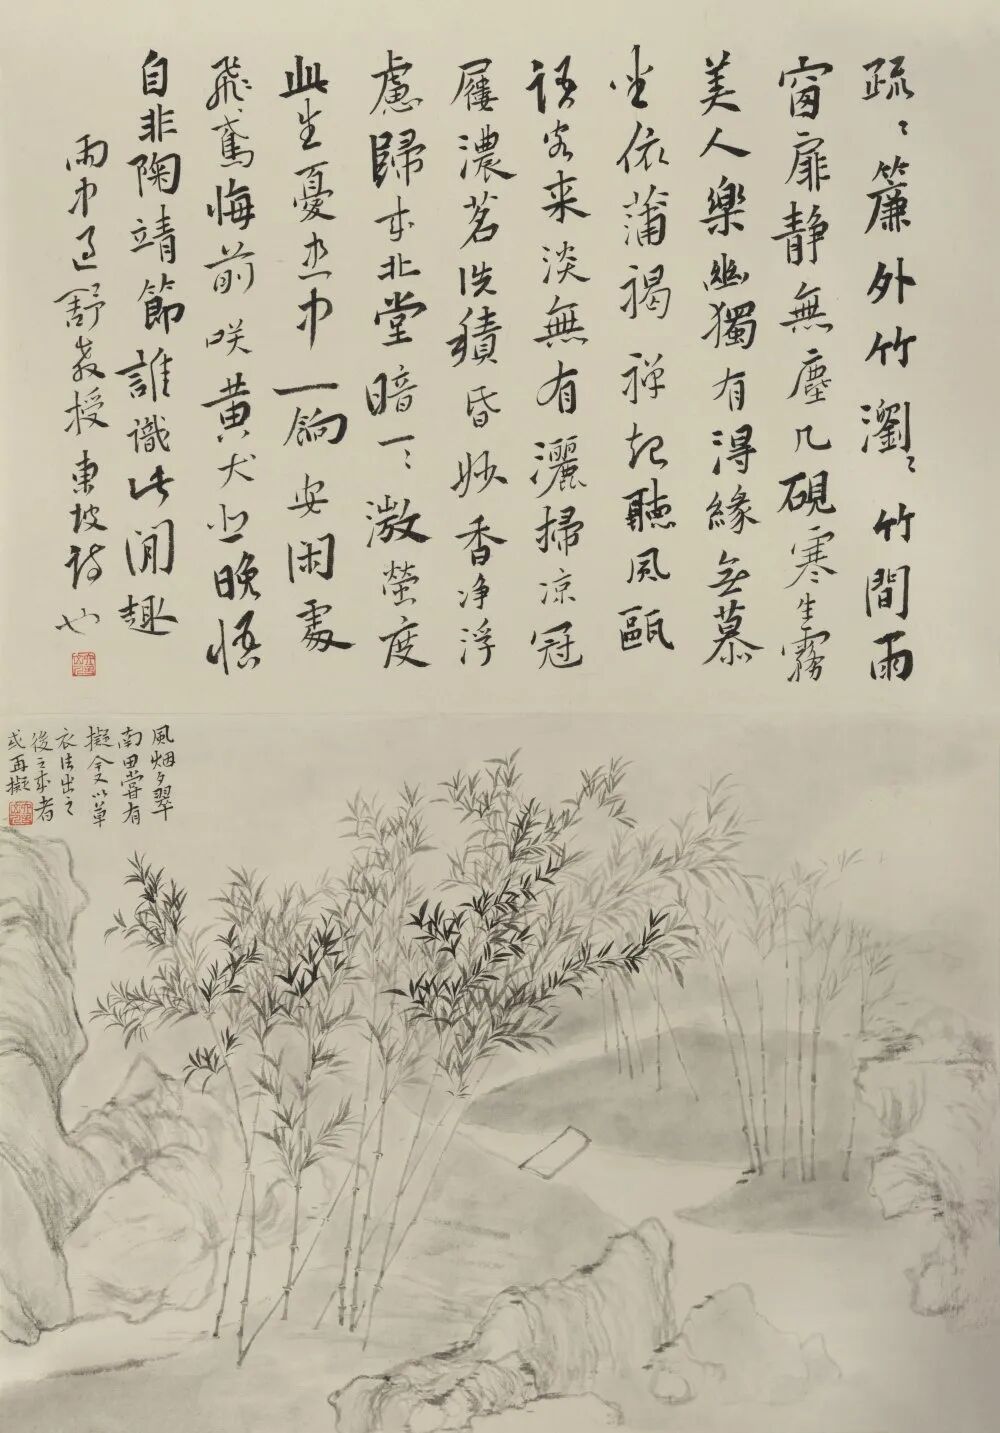 疏〻簾外竹瀏〻竹間雨
窗扉静無塵几硯寒生霧
美人樂幽獨有得緣無慕
坐依蒲褐禅起聽風甌
語客来淡無有灑掃凉冠
屨濃茗洗積昏妙香净浮
慮歸来北堂暗一〻微螢度
此生憂患中一餉安閑處
飛鳶悔前咲黄犬悲晚悟
自非陶靖節誰識此閒趣
雨中過舒教授東坡詩也
風烟夕翠
南田嘗有
擬今又以草
衣法出之
後之来者
或再擬